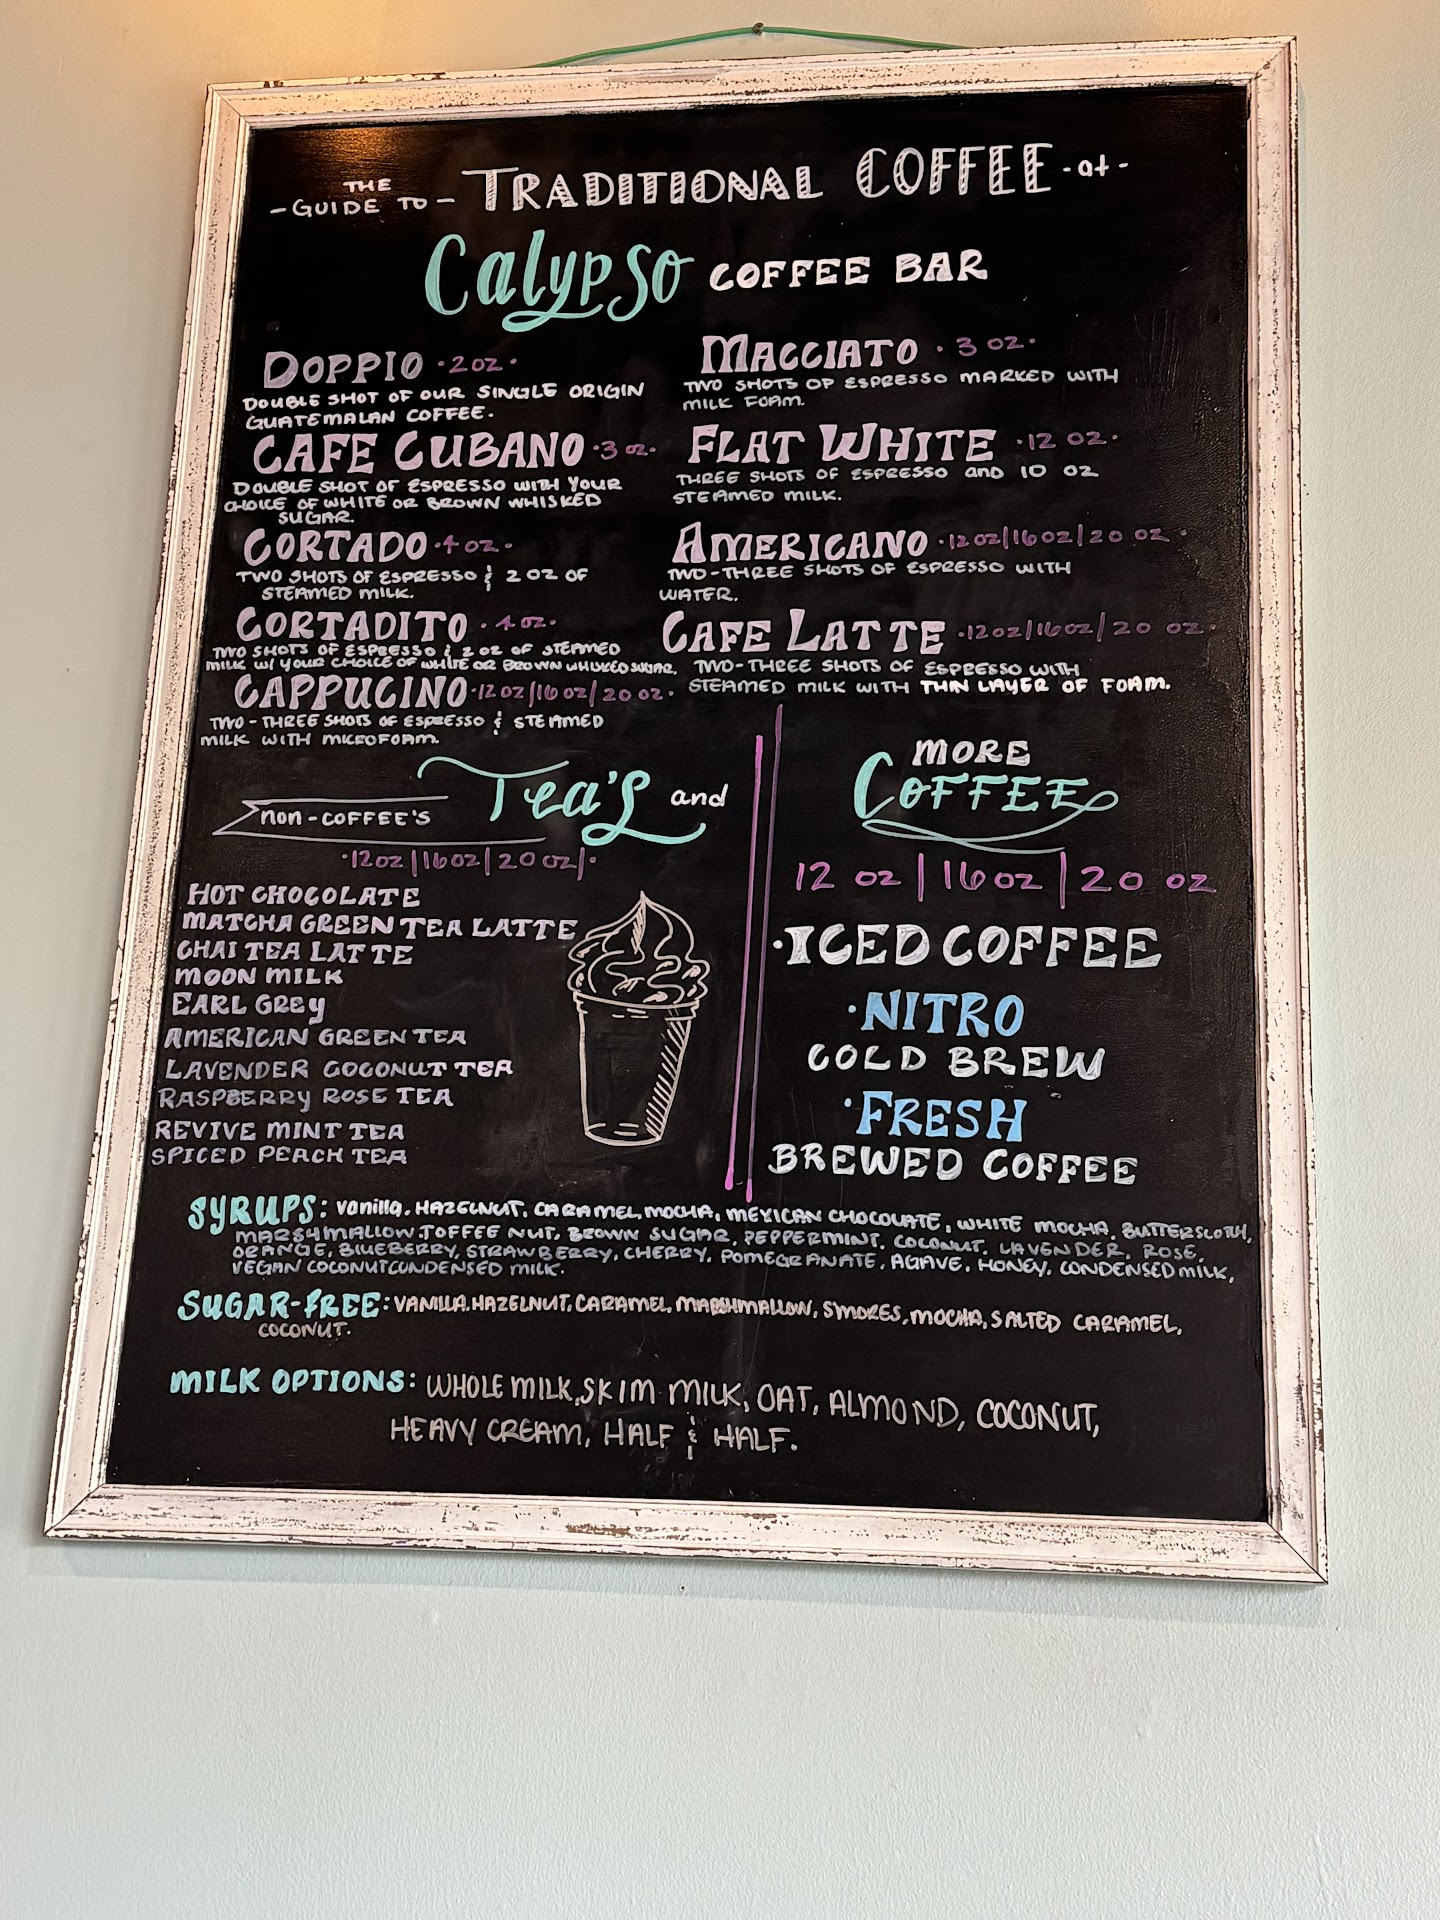 THE
- GUIDE TO - TRADITIONAL COFFEE - at -
Calypso COFFEE BAR
DOPPIO · 2 OZ ·
DOUBLE SHOT OF OUR SINGLE ORIGIN
GUATEMALAN COFFEE.
CAFE CUBANO · 3 OZ ·
DOUBLE SHOT OF ESPRESSO WITH YOUR
CHOICE OF WHITE OR BROWN WHISKED
SUGAR.
CORTADO · 4 OZ ·
TWO SHOTS OF ESPRESSO & 2 OZ OF
STEAMED MILK.
CORTADITO · 4 OZ ·
TWO SHOTS OF ESPRESSO & 2 OZ OF STEAMED
MILK W/ YOUR CHOICE OF WHITE OR BROWN WHISKED SUGAR.
CAPPUCINO · 12 OZ | 16 OZ | 20 OZ ·
TWO - THREE SHOTS OF ESPRESSO & STEAMED
MILK WITH MICROFOAM.
MACCIATO · 3 OZ ·
TWO SHOTS OF ESPRESSO MARKED WITH
MILK FOAM.
FLAT WHITE · 12 OZ ·
THREE SHOTS OF ESPRESSO and 10 OZ
STEAMED MILK.
AMERICANO · 12 OZ | 16 OZ | 20 OZ ·
TWO-THREE SHOTS OF ESPRESSO WITH
WATER.
CAFE LATTE · 12 OZ | 16 OZ | 20 OZ ·
TWO-THREE SHOTS OF ESPRESSO WITH
STEAMED MILK WITH THIN LAYER OF FOAM.
Tea's and
non-COFFEE'S
· 12 OZ | 16 OZ | 20 OZ | ·
HOT CHOCOLATE
MATCHA GREEN TEA LATTE
CHAI TEA LATTE
MOON MILK
EARL GREY
AMERICAN GREEN TEA
LAVENDER COCONUT TEA
RASPBERRY ROSE TEA
REVIVE MINT TEA
SPICED PEACH TEA
MORE
COFFEE
12 OZ | 16 OZ | 20 OZ
· ICED COFFEE
· NITRO
COLD BREW
· FRESH
BREWED COFFEE
SYRUPS: Vanilla, HAZELNUT, CARAMEL, MOCHA, MEXICAN CHOCOLATE, WHITE MOCHA, BUTTERSCOTCH,
MARSHMALLOW, TOFFEE NUT, BROWN SUGAR, PEPPERMINT, COCONUT, LAVENDER, ROSE,
ORANGE, BLUEBERRY, STRAWBERRY, CHERRY, POMEGRANATE, AGAVE, HONEY, CONDENSED MILK,
VEGAN COCONUT CONDENSED MILK.
SUGAR-FREE: VANILLA, HAZELNUT, CARAMEL, MARSHMALLOW, SMORES, MOCHA, SALTED CARAMEL,
COCONUT.
MILK OPTIONS: WHOLE MILK, SKIM MILK, OAT, ALMOND, COCONUT,
HEAVY CREAM, HALF & HALF.